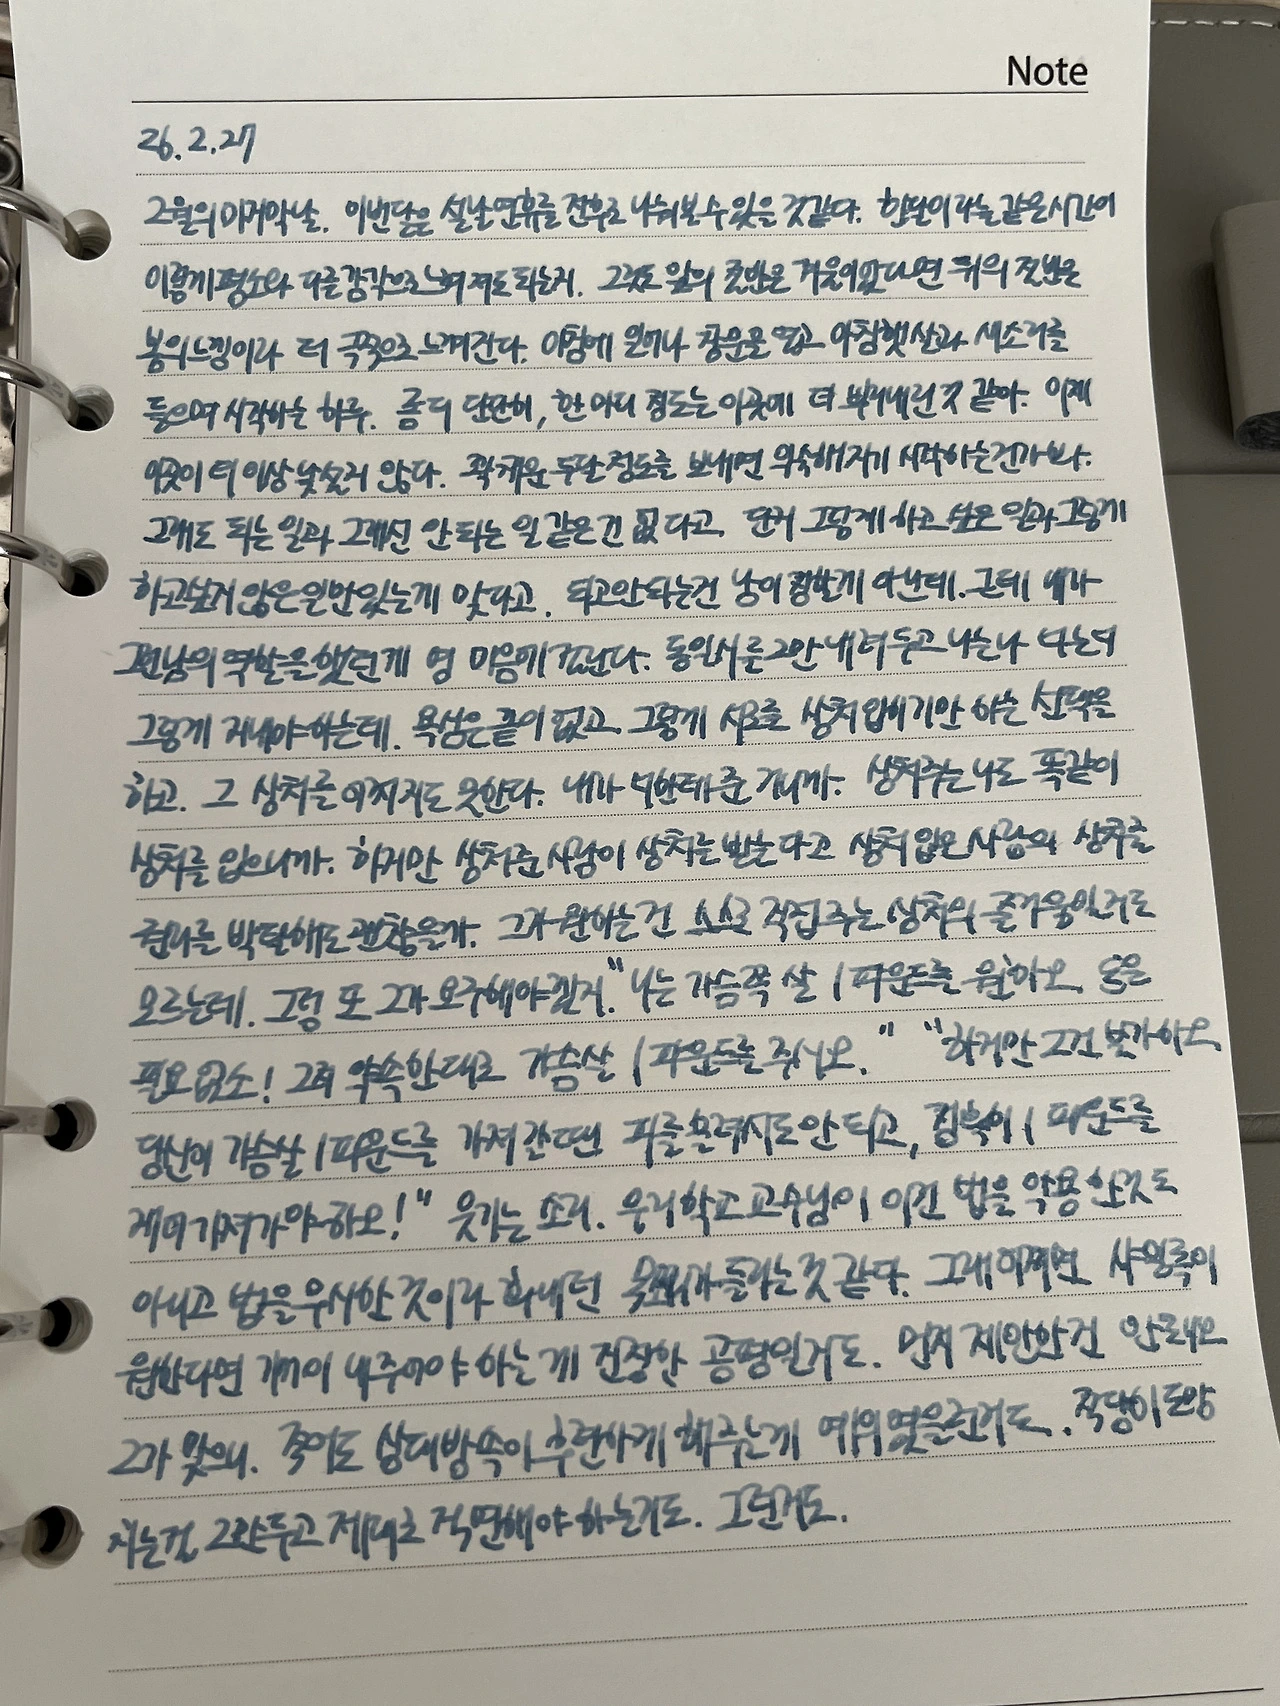 Note
26.2.27
2월의 마지막날. 이번달은 설날연휴를 전후로 나눠볼수있을것같다. 한달이라는 같은시간이
이렇게 평소와 다른감각으로 느껴져도 되는지. 그래도 앞의 절반은 겨울이었다면 뒤의 절반은
봄의느낌이라 더 극적으로 느껴진다. 아침에 일어나 창문을 열고 아침햇살과 새소리를
들으며 시작하는 하루. 좀 더 단단히, 한 마디 정도는 이곳에 더 뿌리내린 것 같아. 이제
이곳이 더 이상 낯설지 않다. 꽉 채운 두달 정도를 보내면 익숙해지기 시작하는건가보다.
그래도 되는 일과 그래선 안 되는 일 같은 건 없다고. 단지 그렇게 하고 싶은 일과 그렇게
하고싶지 않은일만있는게 맞다고. 되고안되는건 남이 정할게 아닌데. 근데 내가
그런남의 역할을했던게 영 마음에 걸린다. 동일시를 그만 내려두고 나는나 너는너
그렇게 지내야하는데. 욕심은 끝이 없고 그렇게 서로를 상처입히기만 하는 선택을
하고. 그 상처를 어쩌지도 못한다. 내가 너한테 준 거니까. 상처주는 나도 똑같이
상처를 입으니까. 하지만 상처준사람이 상처를 받는다고 상처 입은 사람의 상처줄
권리를 박탈해도 괜찮을까. 그가 원하는건 스스로 직접 주는 상처의 즐거움일지도
모르는데. 그럼 또 그가 요구해야겠지. "나는 가슴쪽 살 1파운드를 원하오 돈은
필요없소! 그저 약속한대로 가슴살 1파운드를 주시오." "하지만 그건 불가하오
당신이 가슴살 1파운드를 가져간다면 피를 흘려서도 안 되고, 정확히 1파운드를
재어 가져가야하오!" 웃기는 소리. 우리학교 교수님이 이건 법을 악용한것도
아니고 법을 무시한 것이라 화내던 목소리가 들리는 것 같다. 그래 어쩌면 샤일록이
원한다면 기꺼이 내주어야 하는 게 진정한 공평일지도. 먼저 제안한건 안토니오
그가 맞으니. 죽어도 상대방속이 후련하게 해주는게 예의였을런지도. 적당히 도망
치는건 그만두고 제대로 직면해야 하는지도. 그런지도.